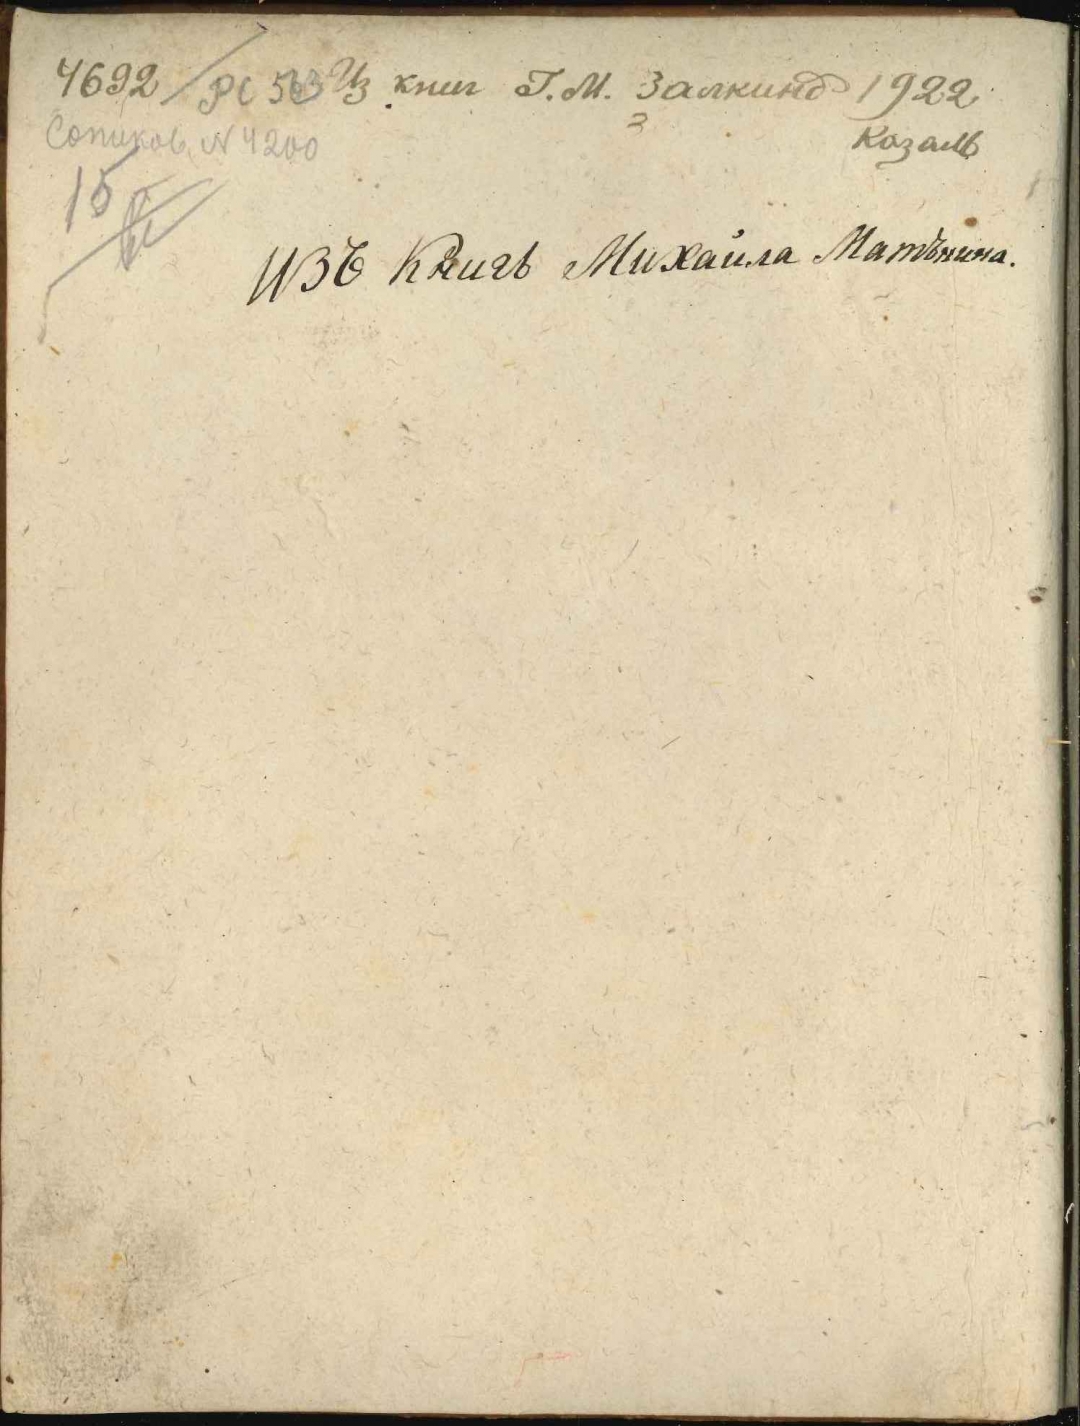 4692 РС 563 Из книг Г. М. Залкинд 1922
Сопиков N 4200 Казань
15
ИЗЪ Книгъ Михайла Матѣнина.